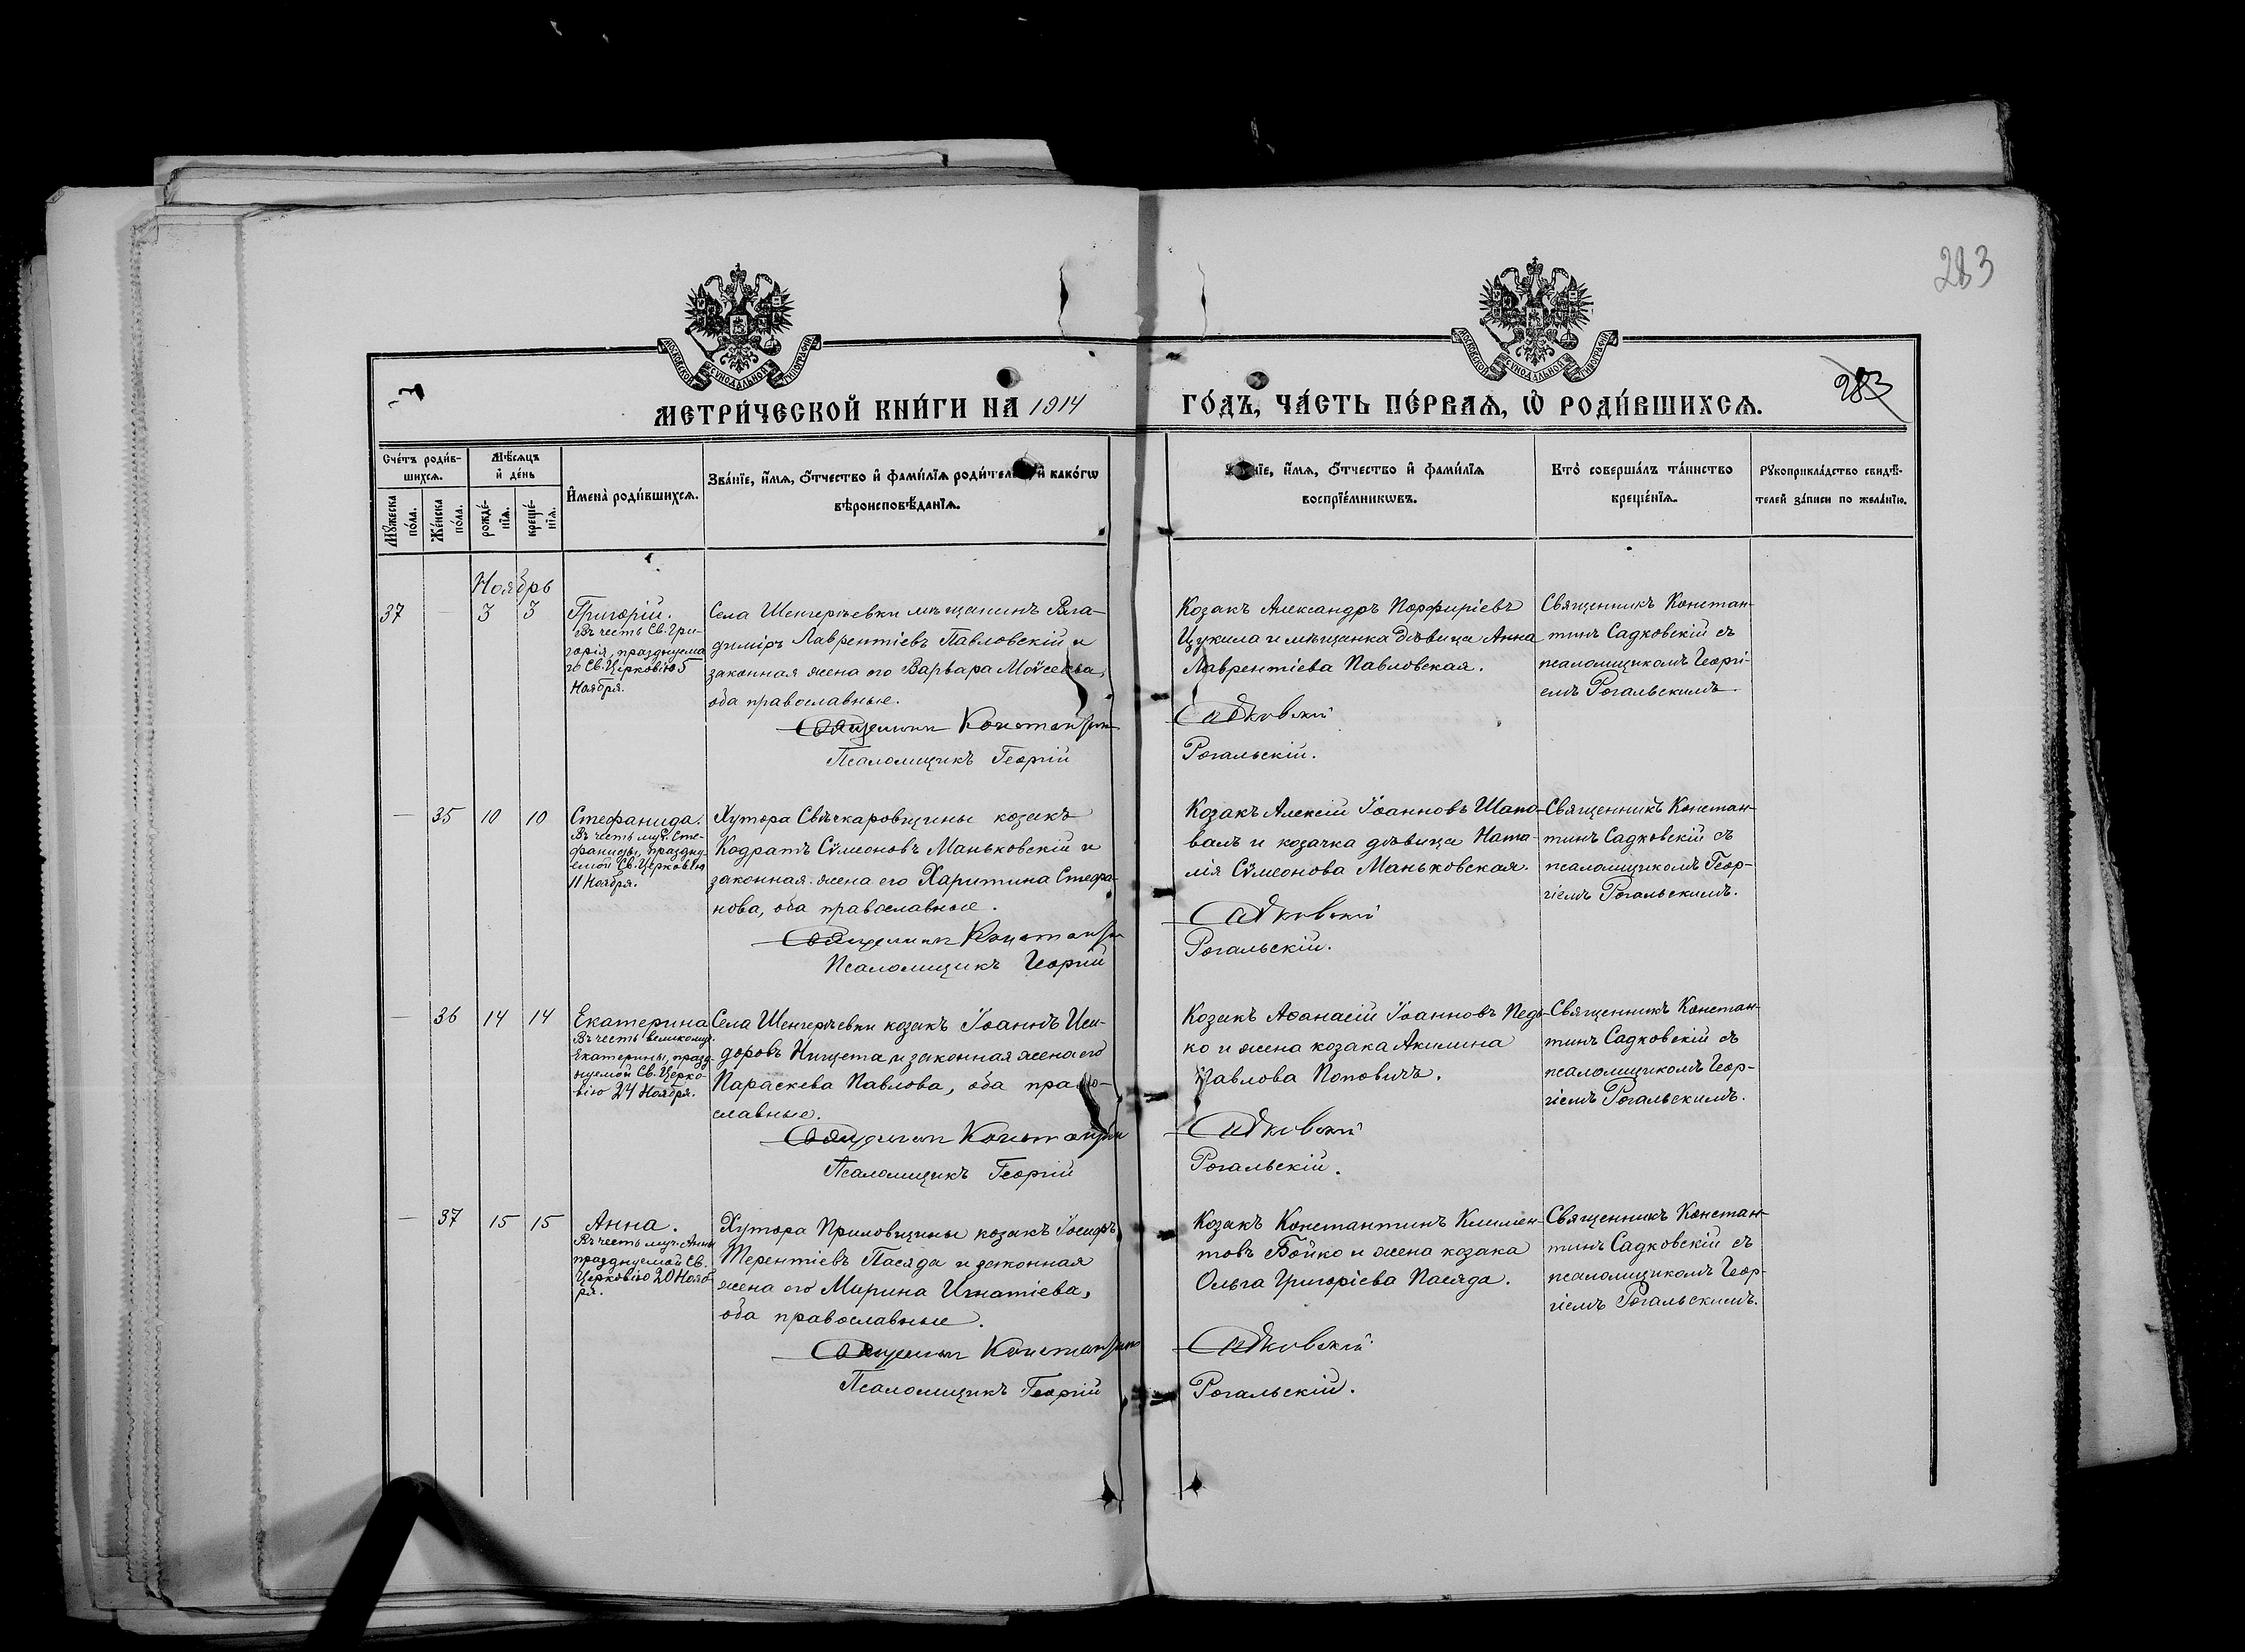 283
МОСКОВСКОЙ СѴНОДАЛЬНОЙ ТИПОГРАФІИ
МОСКОВСКОЙ СѴНОДАЛЬНОЙ ТИПОГРАФІИ
283
МЕТРИ́ЧЕСКОЙ КНИ́ГИ НА 1914 ГО́ДЪ, ЧА́СТЬ ПЕ́РВАѦ, Ѡ҆ РОДИ́ВШИХСѦ.
Сче́тъ роди́в-
шихсѧ.
Мѣ́сѧцъ
и҆ де́нь
И҆мена̀ роди́вшихсѧ.
Зва́нїе, и҆́мѧ, ѻ҆́тчество и҆ фами́лїѧ роди́телей, и҆ како́гѡ
вѣроисповѣ́данїѧ.
Зва́нїе, и҆́мѧ, ѻ҆́тчество и҆ фами́лїѧ
воспрїе́мникѡвъ.
Кто̀ соверша́лъ та́инство
креще́нїѧ.
Рꙋкоприкла́дство свидѣ́-
телей за́писи по жела́нїю.
Мꙋ́жеска
по́ла.
Же́нска
по́ла.
рожде́-
нїѧ.
креще́-
нїѧ.
Ноябрь
37 — 3 3
Григорій.
Въ честь Св. Гри-
горія, праздуема
го Св. Церковію 5
Ноября.
Села Шенгерѣевки мѣщанинъ Вла-
диміръ Лаврентіевъ Павловскій и
законная жена его Варвара Моѵсеева,
оба православные.
Священникъ Константинъ
Псаломщикъ Георгій
Козакъ Александръ Порфиріевъ
Цукила и мѣщанка дѣвица Анна
Лаврентіева Павловская.
Садковскій
Рогальскій.
Священникъ Констан-
тинъ Садковскій съ
псаломщикомъ Георгі-
емъ Рогальскимъ.
— 35 10 10
Стефанида.
Въ честь муч. Сте-
фаниды, праздну-
емой Св. Церковію
11 Ноября.
Хутора Свѣчкаровщины козакъ
Кодратъ Сѵмеоновъ Маньковскій и
законная жена его Харитина Стефа-
нова, оба православные.
Священникъ Константинъ
Псаломщикъ Георгій
Козакъ Алексій Іоанновъ Шапо-
валъ и козачка дѣвица Ната-
лія Сѵмеонова Маньковская.
Садковскій
Рогальскій.
Священникъ Констан-
тинъ Садковскій съ
псаломщикомъ Геор-
гіемъ Рогальскимъ.
— 36 14 14
Екатерина
Въ честь великомуч.
Екатерины, празд-
нуемой Св. Церко-
вію 24 Ноября.
Села Шенгерѣевки козакъ Іоаннъ Иси-
доровъ Нищета и законная жена его
Параскева Павлова, оба право-
славные.
Священникъ Константинъ
Псаломщикъ Георгій
Козакъ Аѳанасій Іоанновъ Педь-
ко и жена козака Акилина
Павлова Поповичъ.
Садковскій
Рогальскій.
Священникъ Констан-
тинъ Садковскій съ
псаломщикомъ Геор-
гіемъ Рогальскимъ.
— 37 15 15
Анна.
Въ честь муч. Анны
празднуемой Св.
Церковію 20 Нояб-
ря.
Хутора Приловщины козакъ Іосифъ
Терентіевъ Пасяда и законная
жена его Марина Игнатіева,
оба православные.
Священникъ Константинъ
Псаломщикъ Георгій
Козакъ Константинъ Климен-
товъ Бойко и жена козака
Ольга Григоріева Пасяда.
Садковскій
Рогальскій.
Священникъ Констан-
тинъ Садковскій съ
псаломщикомъ Геор-
гіемъ Рогальскимъ.